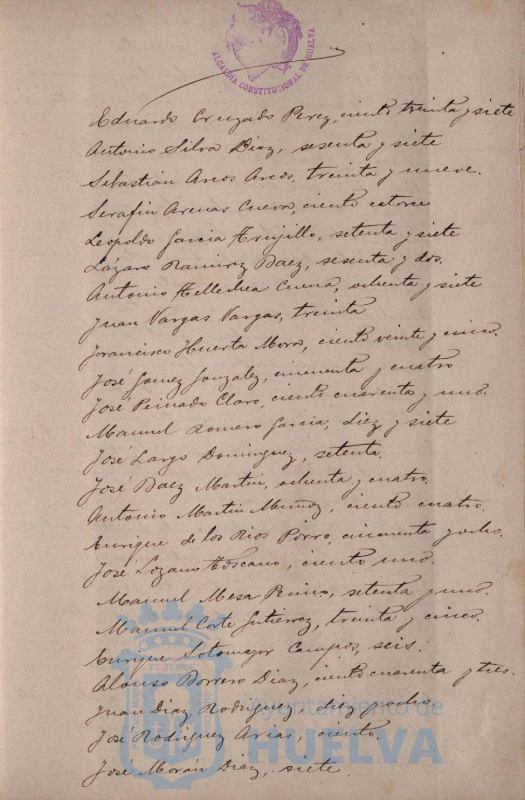 ALCALDIA CONSTITUCIONAL DE HUELVA
Eduardo Cruzado Perez, ciento treinta y siete
Antonio Silva Diaz, sesenta y siete
Sebastian Arcos Arcos, treinta y nueve.
Serafin Arenas Cueva, ciento catorce
Leopoldo Garcia Trujillo, setenta y siete
Lázaro Ramirez Baez, sesenta y dos.
Antonio Tellechea Cuena, ochenta y siete
Juan Vargas Vargas, treinta
Francisco Huerta Mora, ciento veinte y cinco.
José Gomez Gonzalez, cincuenta y cuatro
José Peinado Claro, ciento cuarenta y uno.
Manuel Romero Garcia, diez y siete
José Largo Dominguez, setenta.
José Baez Martin, ochenta y cuatro.
Antonio Martin Muñoz, ciento cuatro.
Enrique de los Rios Porro, cincuenta y ocho.
José Lozano Toscano, ciento uno.
Manuel Mesa setenta y uno.
Manuel Corte Gutierrez, treinta y cinco.
Enrique Sotomayor Campos, seis.
Alonso Borrero Diaz, ciento cuarenta y tres.
Juan Diaz Rodriguez, diez y ocho.
José Rodriguez Arias, ciento.
José Morán Diaz, siete.
Ayuntamiento de
HUELVA